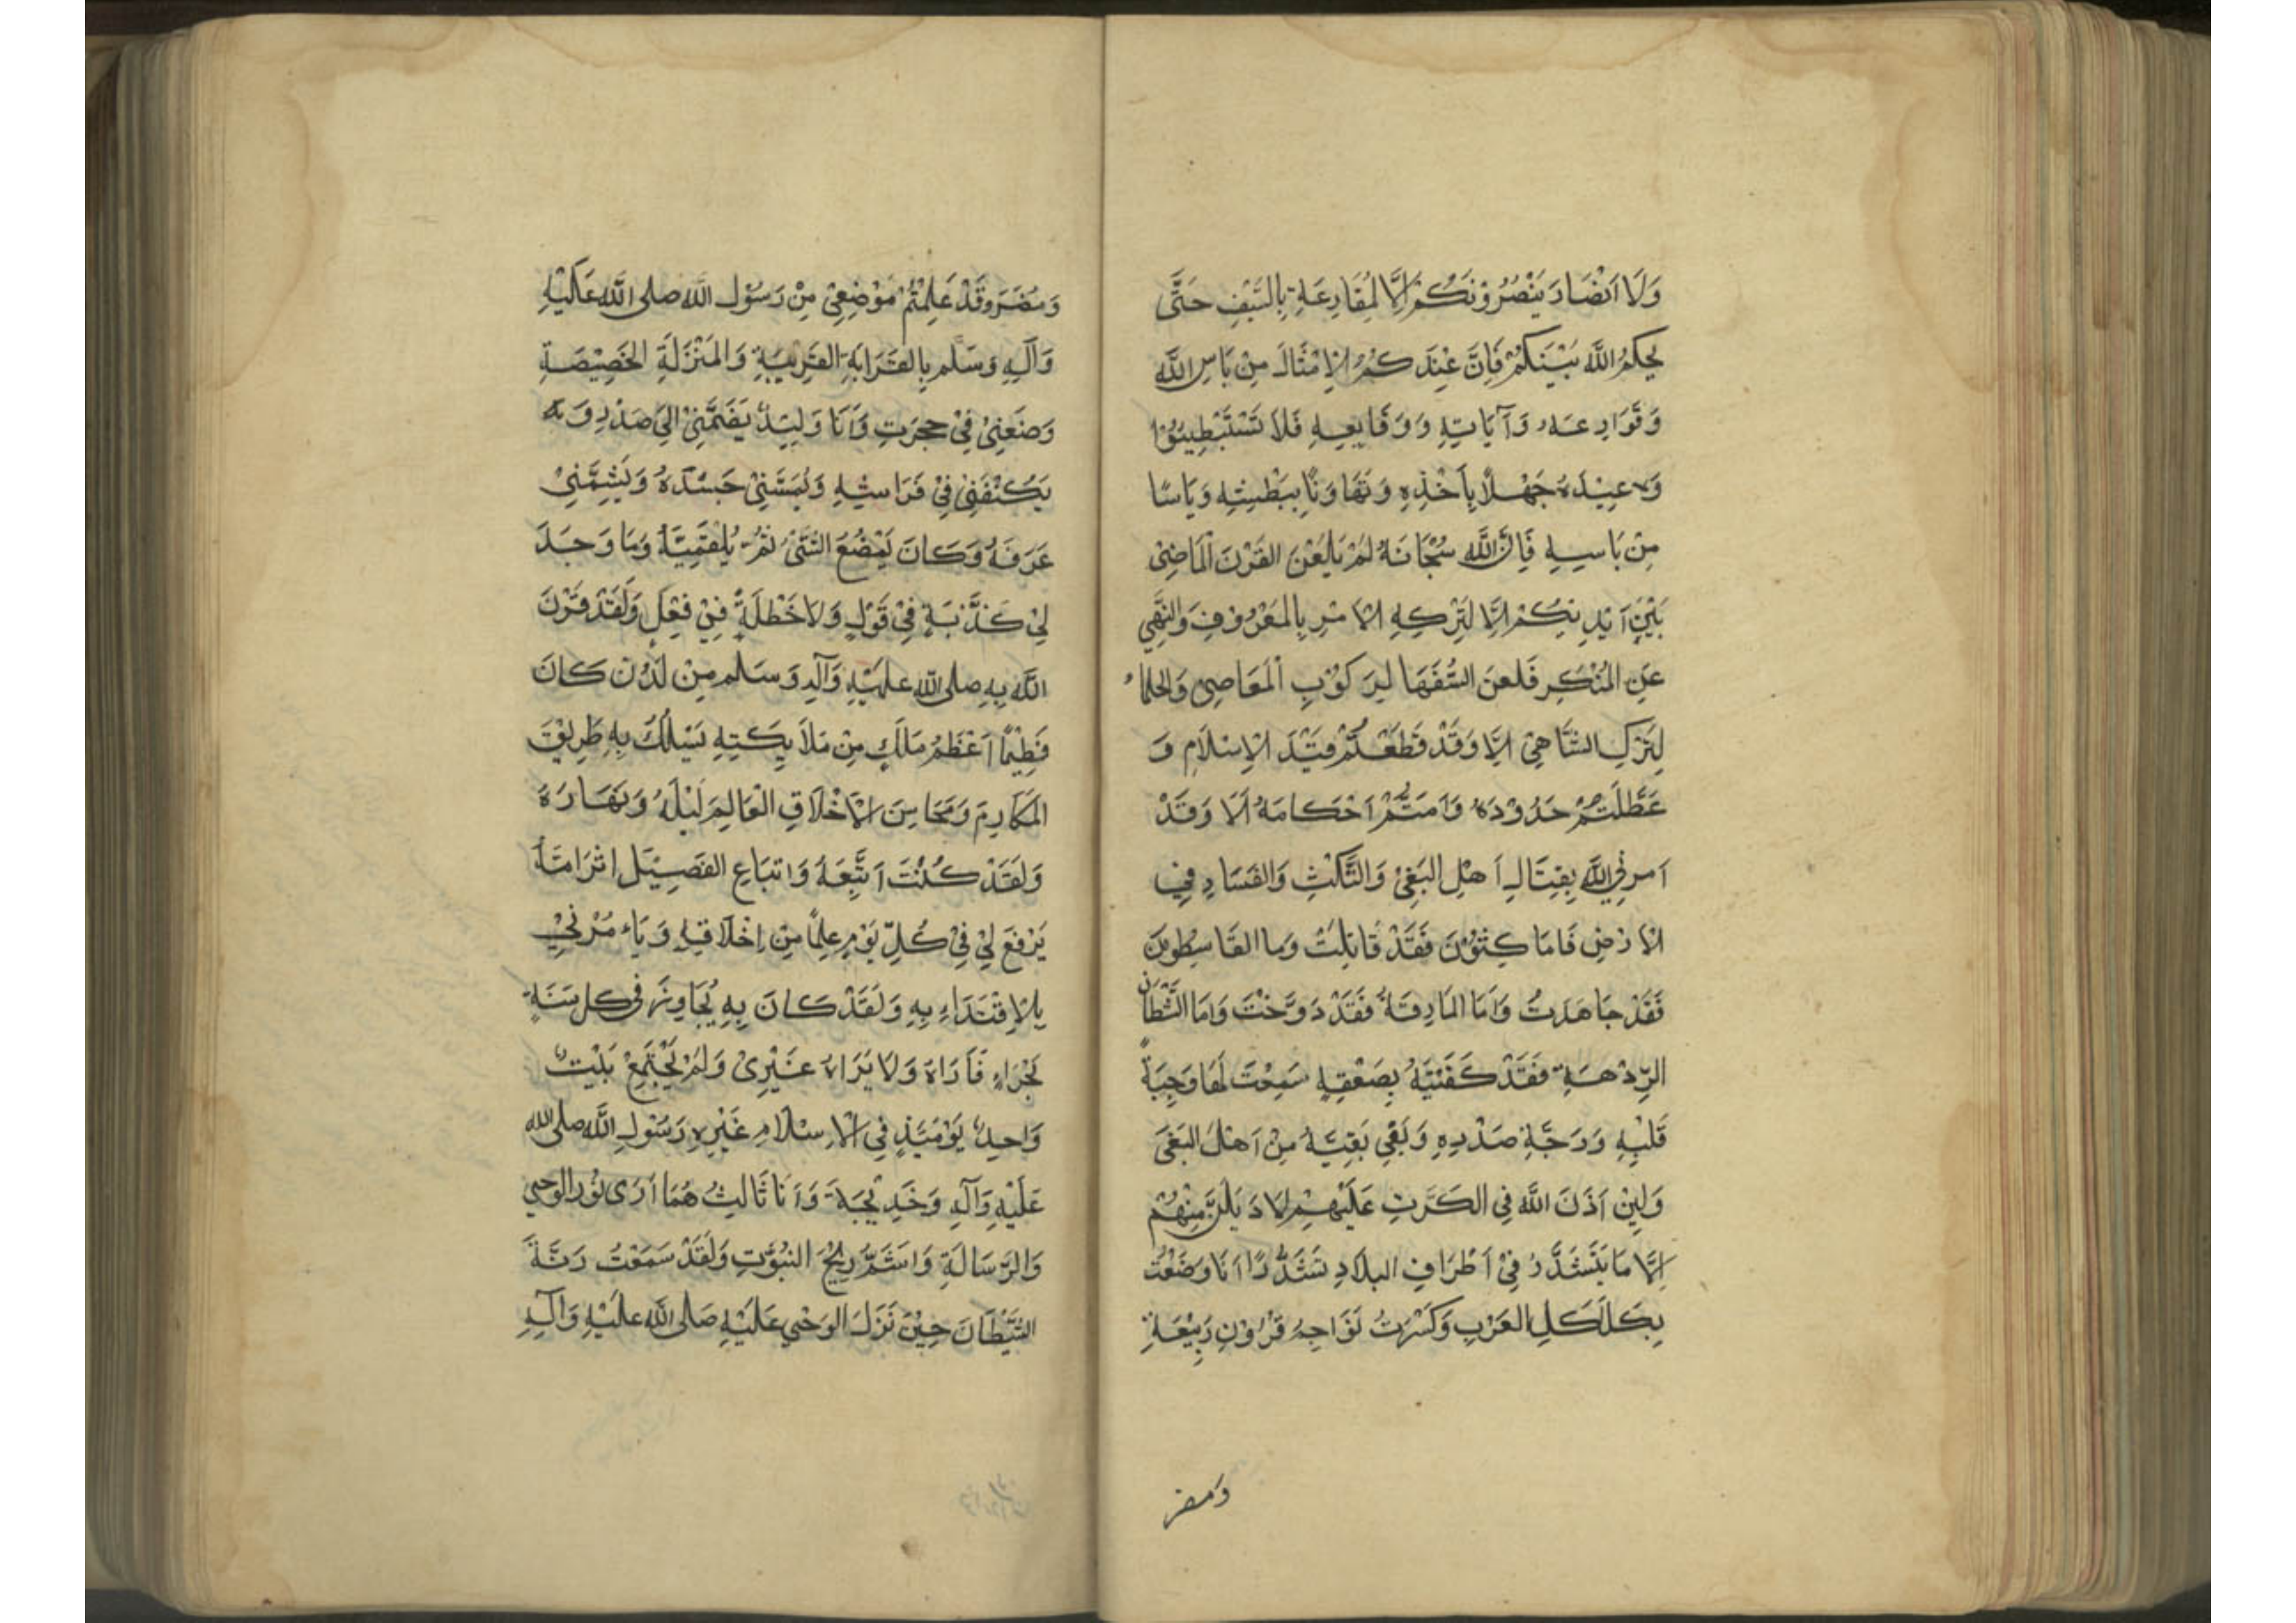 وَلَا اَنْصَارَ يَنْصُرُوْنَكُمْ اِلَّا لْمُقَارِعَةِ بِالسَّيْفِ حَتّٰى
يَحْكُمُ اللّٰهُ بَيْنَكُمْ فَاِنَّ عِنْدَكُمُ الْاِمْثَالَ مِنْ بَاسِ اللّٰهِ
وَقَوَارِعَهِ وَآيَاتِهِ وَوَقَايِعِهِ فَلَا تَسْتَبْطِيئُوْا
وَعِيْدَهُ جَهْلًا بِاَخْذِهِ وَتَهَاوَنًا بِبَطْشِهِ وَيَاسًا
مِنْ بَاسِهِ فَاِنَّ اللّٰهَ سُبْحَانَهُ لَمْ يَلْعَنْ القَرْنَ الْمَاضِيْ
بَيْنَ اَيْدِيْكُمْ اِلَّا لِتَرْكِهِ الْاَمْرِ بِالمَعْرُوْفِ وَالنَّهْيِ
عَنِ الْمُنْكَرِ فَلَعَنَ السُّفَهَا لِيَرَكُوْبِ الْمَعَاصِيْ وَالحُلَمَاءُ
لِتَرْكِ التَّنَاهِيْ اَلَا وَقَدْ قَطَعْتُمْ قَيْدَ الْاِسْلَامِ وَ
عَطَّلْتُمْ حَدُوْدَهُ وَاَمَتُّمْ اَحْكَامَهُ اَلَا وَقَدْ
اَمَرَنِيَ اللّٰهُ بِقِتَالِ اَهْلِ البَغْيِ وَالنَّكْثِ وَالفَسَادِ فِي
الْاَرْضِ فَامَا كِثُوْنَ فَقَدْ قَاتَلْتُ وَما القَاسِطُونَ
فَقَدْ جَاهَدْتُ وَاَمَا المَارِقَةُ فَقَدْ دَوَّخْتُ وَاَمَا الشَّطَانُ
الرِّدْهَةِ فَقَدْ كَفَيْتَهُ بِصَعْقِهٍ سَمِعْتَ لَهَا وَجِبَةً
قَلْبِهِ وَرَجَّةِ صَدْرِهِ وَبَقِي بَقِيَّةُ مِنْ اَهْلَ البَغْيَ
وَلَئِنْ اَذَنَ اللّٰهُ فِي الكَرَّتِ عَلَيْهِمْ لِاَدَيْلَنَّ مِنْهُمْ
اِلَّا مَا يَتَشَذَّرُ فِيْ اَطْرَافِ البلَادِ تَشَذُّرًا اَنَا وَضَعْتُ
بِكَلَاكَلِ العَرْبِ وَكَسَرْتُ نَوَاجِمُ قَرُوْنِ رَبِيْعَةِ
وَمضر
وَمُضَرَ وَقَدْ عَلِمْتُمْ مَوْضِعِيْ مِنْ رَسُوْلِ اللّٰه صلى اللّٰه عَلَيْهِ
وَآلِهِ وَسَلَّم بِالقَرَابَةِ القَرِيْبَةِ وَالمَنْزَلَةِ الخَصِيْصَةِ
وَضَعَنِيْ فِيْ حِجرَتِ وَاَنَا وَلِيْدٌ يَضَمَّنِيْ اِلَى صَدْرِهِ وَ
يَكْنُفَنِيْ فِيْ فَرَاشِهِ وَيُمَسَّنِيْ جَسَدَهُ وَيُشِمَّنِيْ
عَرَفَهُ وَكَانَ يَمْضُغُ الشَّيْئَ ثُمَّ يُلْقِمَنِيْهُ وَمَا وَجَدَ
لِيْ كَذْبَةٍ فِيْ قَوْلٍ وَلَا خَطْلَةً فِيْ فِعْلٍ وَلَقَدْ قَرْنَ
اللّٰهُ بِهِ صلى اللّٰه علَيْهِ وَآلِهِ وَسَلم مِنْ لَدُنْ كَانَ
فَطِيْمًا اَعْظَمُ مَلَكٍ مِنْ مَلَائِكَتِهِ يَسْلُكُ بِهِ طَرِيْقَ
المَكَارِمَ وَمَحَاسِنَ الْاَخْلَاقِ الْعَالِمَ لَيْلَهُ وَنَهَارَهُ
وَلَقَدْ كُنْتَ اَتَّبِعَهُ وَاتبَاعِ الفَصِيْلِ اثْرَ امَّهُ
يَرْفَعَ لِيْ فِيْ كُلِّ يَوْمٍ عِلْمًا مِنْ اِخْلَاقِهِ وَيَاءمُرْنِيْ
بِالْاِقْتَدَاءِ بِهِ وَلَقَدْ كَانَ بِهِ يُجَاوِرَ فِي كل سَنَةٍ
بَحْرَاءٍ فَاَرَاهُ وَلَا يَرَاهُ غَيْرِيْ وَلَمْ يَجْتَمِعْ بَيْتٌ
وَاحِدٌ يَوْمَئِذٍ فِي الْاِسْلَامِ غَيْرِ رَسُوْلِ اللّٰهِ صلى الله
عَلَيْهِ وَآلِهِ وَخَدِيْجَةَ وَاَنَا ثَالِثُ هُمَا اَرَى نُوْرَ الوَحْيِ
وَالرِّسَالَةِ وَاَشَمُّ رِيْحَ النبُوَّتِ وَلَقَدْ سَمِعْتُ رَنَّةَ
الشَّيْطَانَ حِيْنَ نَزَلَ الوَحْيِ عَلَيْهِ صَلى اللّٰه علَيْهِ وَآلِهِ